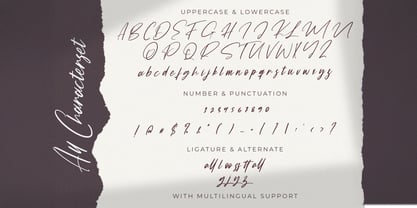 All Characterset
UPPERCASE & LOWERCASE
ABCDEFGHIJKLMN
OPQRSTUVWXYZ
abcdefghijklmnopqrstuvwxyz
NUMBER & PUNCTUATION
1234567890
LIGATURE & ALTERNATE
WITH MULTILINGUAL SUPPORT